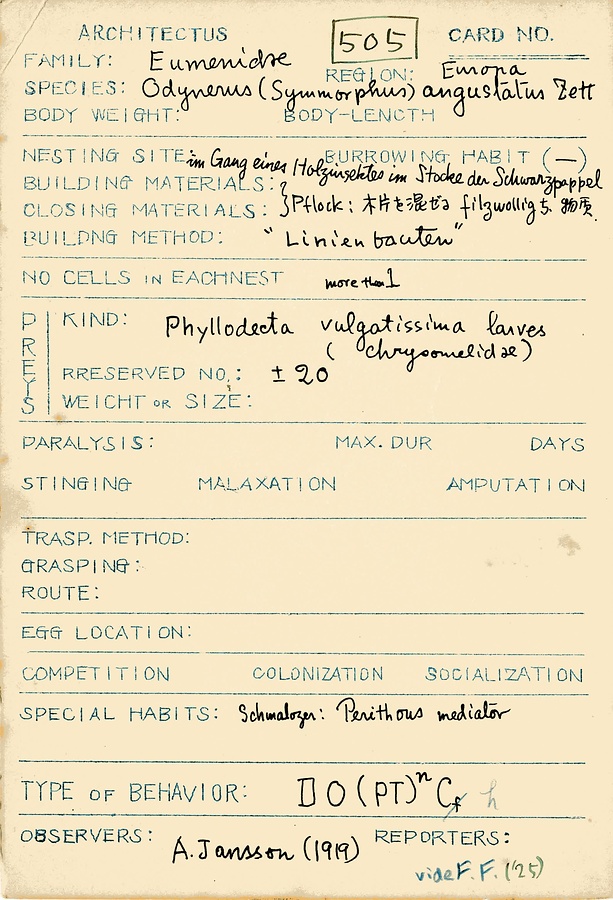 ARCHITECTUS 505 CARD NO.
FAMILY: Eumenidae REGION: Europa
SPECIES: Odynerus (Symmorphus) angustatus Zett
BODY WEIGHT: BODY-LENGTH
NESTING SITE: im Gang eines Holzinsektes im Stocke der Schwarzpappel BURROWING HABIT (—)
BUILDING MATERIALS:
CLOSING MATERIALS: } Pflock: 木片を混ぜる filzwolligな 物質
BUILDNG METHOD: "Linienbauten"
NO CELLS IN EACHNEST more than 1
PREYS
KIND: Phyllodecta vulgatissima larves
(Chrysomelidae)
RRESERVED NO.: ±20
WEIGHT OR SIZE:
PARALYSIS: MAX. DUR DAYS
STINGING MALAXATION AMPUTATION
TRASP. METHOD:
GRASPING:
ROUTE:
EGG LOCATION:
COMPETITION COLONIZATION SOCIALIZATION
SPECIAL HABITS: Schmalozer: Perithous mediator
TYPE OF BEHAVIOR: IO(PT)ⁿCf h
OBSERVERS: A. Jansson (1919) REPORTERS:
vide F. F. ('25)